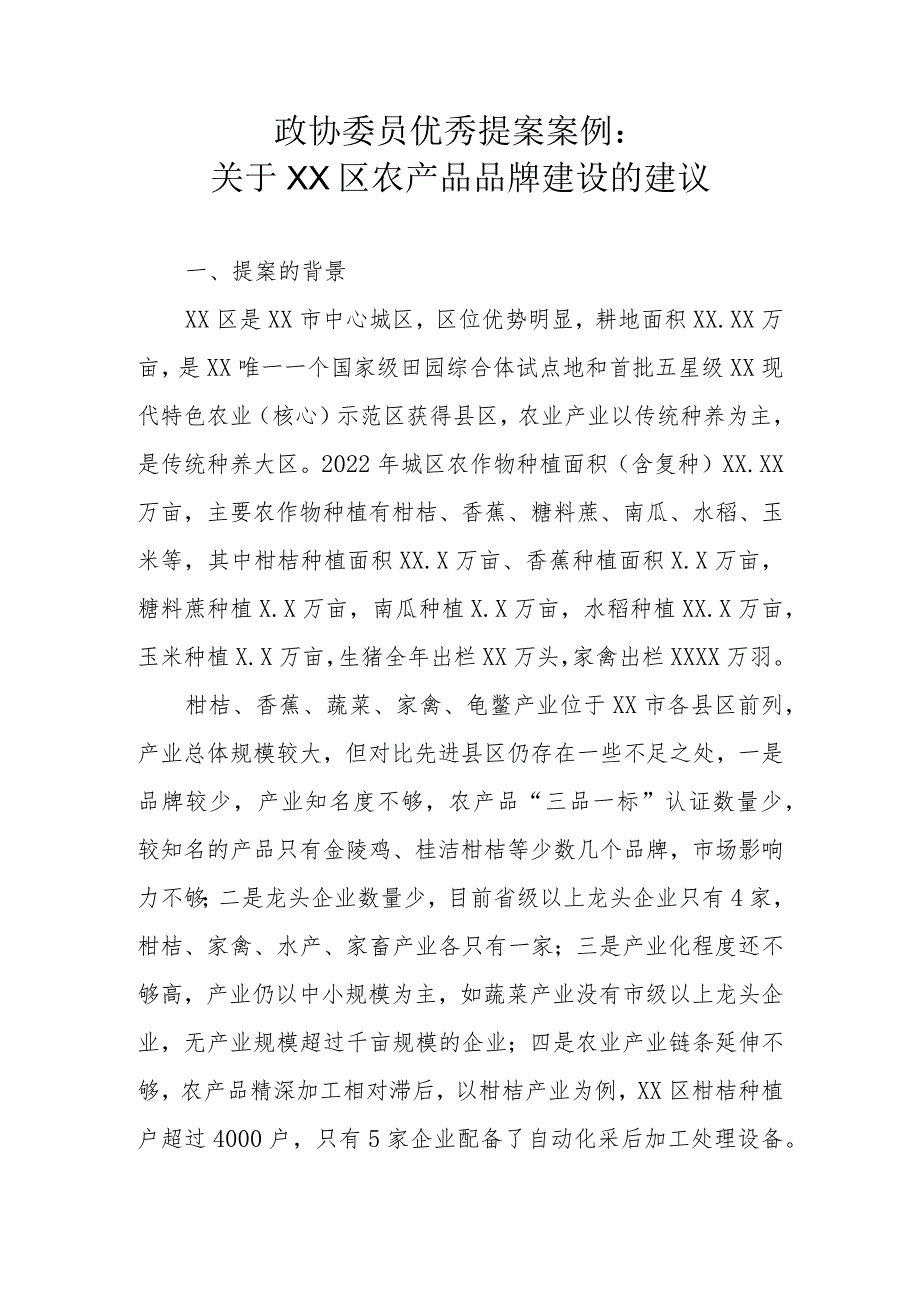 政协委员优秀提案案例：
关于 XX 区农产品品牌建设的建议
一、提案的背景
XX 区是 XX 市中心城区，区位优势明显，耕地面积 XX.XX 万
亩，是 XX 唯一一个国家级田园综合体试点地和首批五星级 XX 现
代特色农业（核心）示范区获得县区，农业产业以传统种养为主，
是传统种养大区。2022 年城区农作物种植面积（含复种）XX.XX
万亩，主要农作物种植有柑桔、香蕉、糖料蔗、南瓜、水稻、玉
米等，其中柑桔种植面积 XX.X 万亩、香蕉种植面积 X.X 万亩，
糖料蔗种植 X.X 万亩，南瓜种植 X.X 万亩，水稻种植 XX.X 万亩，
玉米种植 X.X 万亩，生猪全年出栏 XX 万头，家禽出栏 XXXX 万羽。
柑桔、香蕉、蔬菜、家禽、龟鳖产业位于 XX 市各县区前列，
产业总体规模较大，但对比先进县区仍存在一些不足之处，一是
品牌较少，产业知名度不够，农产品“三品一标”认证数量少，
较知名的产品只有金陵鸡、桂洁柑桔等少数几个品牌，市场影响
力不够；二是龙头企业数量少，目前省级以上龙头企业只有 4 家，
柑桔、家禽、水产、家畜产业各只有一家；三是产业化程度还不
够高，产业仍以中小规模为主，如蔬菜产业没有市级以上龙头企
业，无产业规模超过千亩规模的企业；四是农业产业链条延伸不
够，农产品精深加工相对滞后，以柑桔产业为例，XX 区柑桔种植
户超过 4000 户，只有 5 家企业配备了自动化采后加工处理设备。